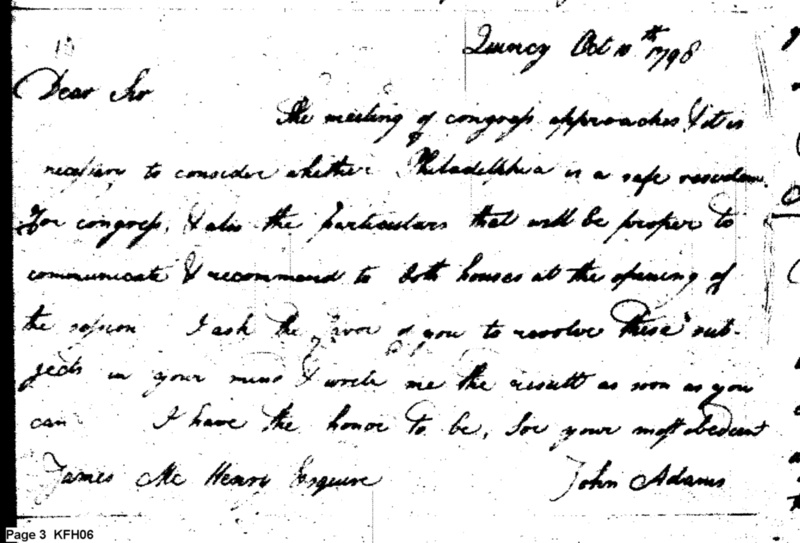 Quincy Oct 10th 1798
Dear Sir
The meeting of congress approaches & it is
necessary to consider whether Philadelphia is a safe residen
for congress, & also the particulars that will be proper to
communicate & recommend to both houses at the opening of
the session I ask the favor of you to revolve these sub-
jects in your mind & write me the result as soon as you
can I have the honor to be, Sir your most obedient
James Mc Henry Esquire John Adams
Page 3 KFH06